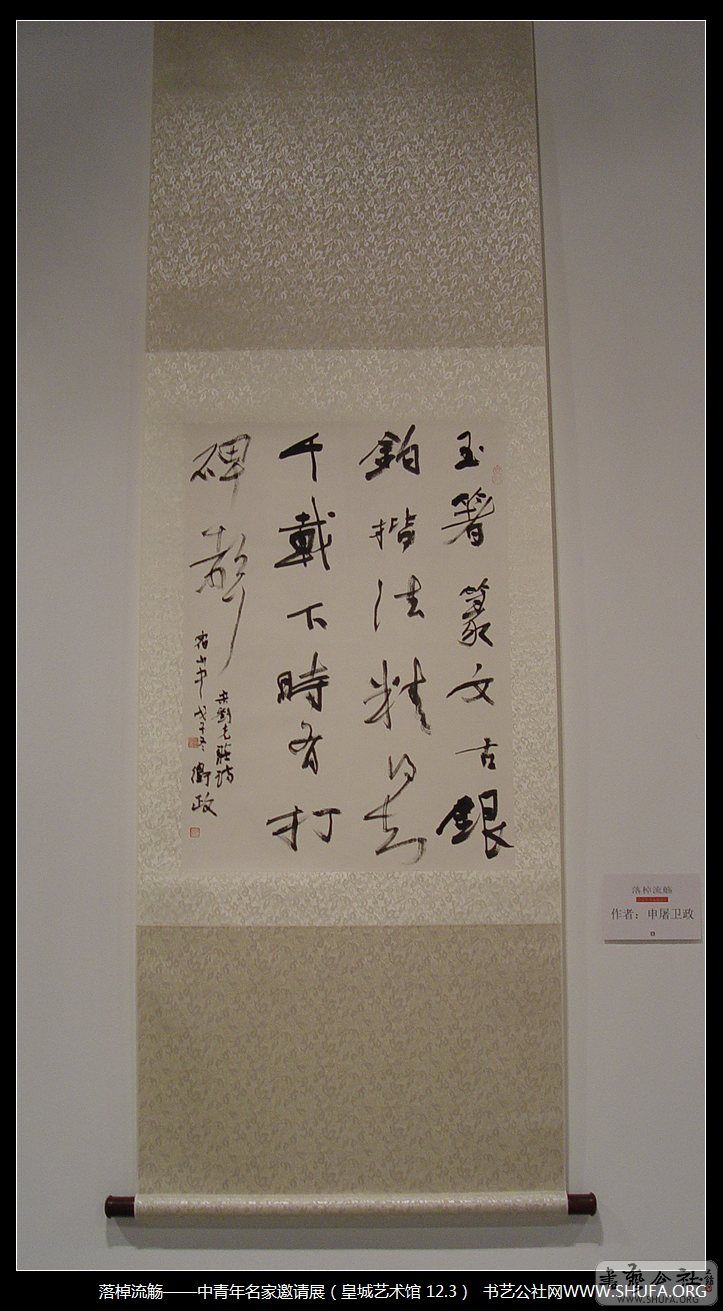 玉箸篆文古銀
鉤楷法精知
千載下時有打
碑聲
劉克莊詩
山中 戊子冬 衛政
落棹流觞
作者：申屠卫政
書藝公社
WWW.SHUFA.ORG
落棹流觞——中青年名家邀请展（皇城艺术馆 12.3） 书艺公社网WWW.SHUFA.ORG